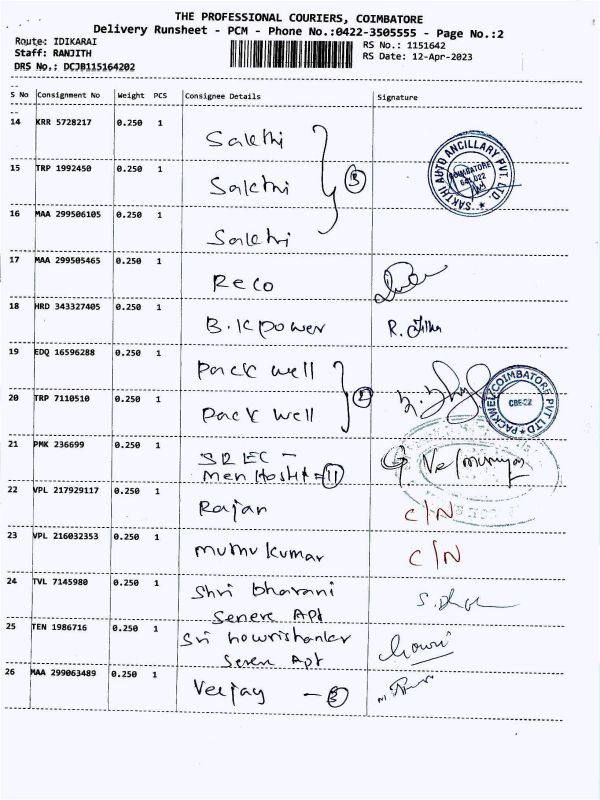 THE PROFESSIONAL COURIERS, COIMBATORE
Delivery Runsheet - PCM - Phone No.:0422-3505555 - Page No.:2
Route: IDIKARAI
Staff: RANJITH
DRS No.: DCJB115164202
RS No.: 1151642
RS Date: 12-Apr-2023
S No Consignment No Weight PCS Consignee Details Signature
14 KRR 5728217 0.250 1 Sakthi
15 TRP 1992450 0.250 1 Sakthi 3
SAKTHI AUTO ANCILLARY PVT. LTD
COIMBATORE
641 022
16 MAA 299506105 0.250 1 Sakthi
17 MAA 299505465 0.250 1 Reco
18 HRD 343327405 0.250 1 B.K power R.
19 EDQ 16596288 0.250 1 Pack well
20 TRP 7110510 0.250 1 Pack well 2
PACKWEL COIMBATORE PVT LTD
CBE-22
21 PMK 236699 0.250 1 SREC -
Men Hostel = 11 Velmurugan
22 VPL 217929117 0.250 1 Rajan C/N
23 VPL 216032353 0.250 1 Muthu Kumar C/N
24 TVL 7145980 0.250 1 Shri bharani
Apt
25 TEN 1986716 0.250 1 Sri Gowrishanker
Apt Gowri
26 MAA 299063489 0.250 1 Veejay - 3